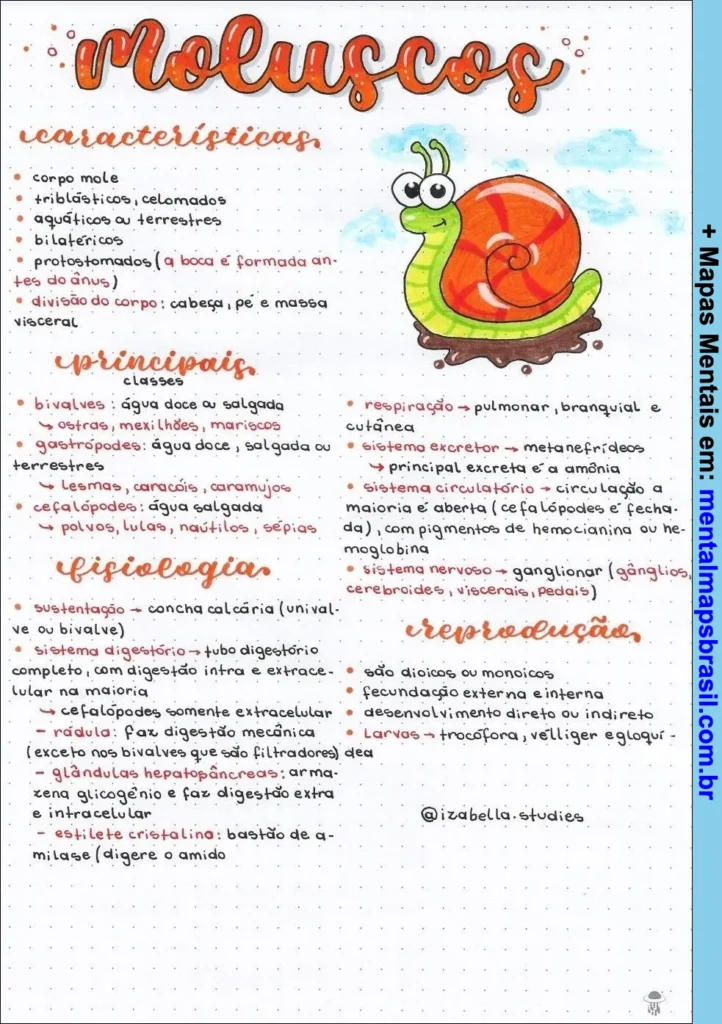 moluscos
características
• corpo mole
• triblásticos, celomados
• aquáticos ou terrestres
• bilatéricos
• protostomados (a boca é formada an-
tes do ânus)
• divisão do corpo: cabeça, pé e massa
visceral
principais
classes
• bivalves: água doce ou salgada
↳ ostras, mexilhões, mariscos
• gastrópodes: água doce, salgada ou
terrestres
↳ lesmas, caracóis, caramujos
• cefalópodes: água salgada
↳ polvos, lulas, naútilos, sépias
fisiologia
• sustentação → concha calcária (unival-
ve ou bivalve)
• sistema digestório → tubo digestório
completo, com digestão intra e extrace-
lular na maioria
↳ cefalópodes somente extracelular
- rádula: faz digestão mecânica
(exceto nos bivalves que são filtradores)
- glândulas hepatopâncreas: arma-
zena glicogênio e faz digestão extra
e intracelular
- estilete cristalina: bastão de a-
milase (digere o amido
• respiração → pulmonar, branquial e
cutânea
• sistema excretor → metanefrídeos
↳ principal excreta é a amônia
• sistema circulatório → circulação a
maioria é aberta (cefalópodes é fecha-
da), com pigmentos de hemocianina ou he-
moglobina
• sistema nervoso → ganglionar (gânglios,
cerebroides, viscerais, pedais)
reprodução
• são dioicos ou monoicos
• fecundação externa e interna
• desenvolvimento direto ou indireto
• larvas → trocófora, velliger e gloquí-
dea
@izabella.studies
+ Mapas Mentais em: mentalmapsbrasil.com.br